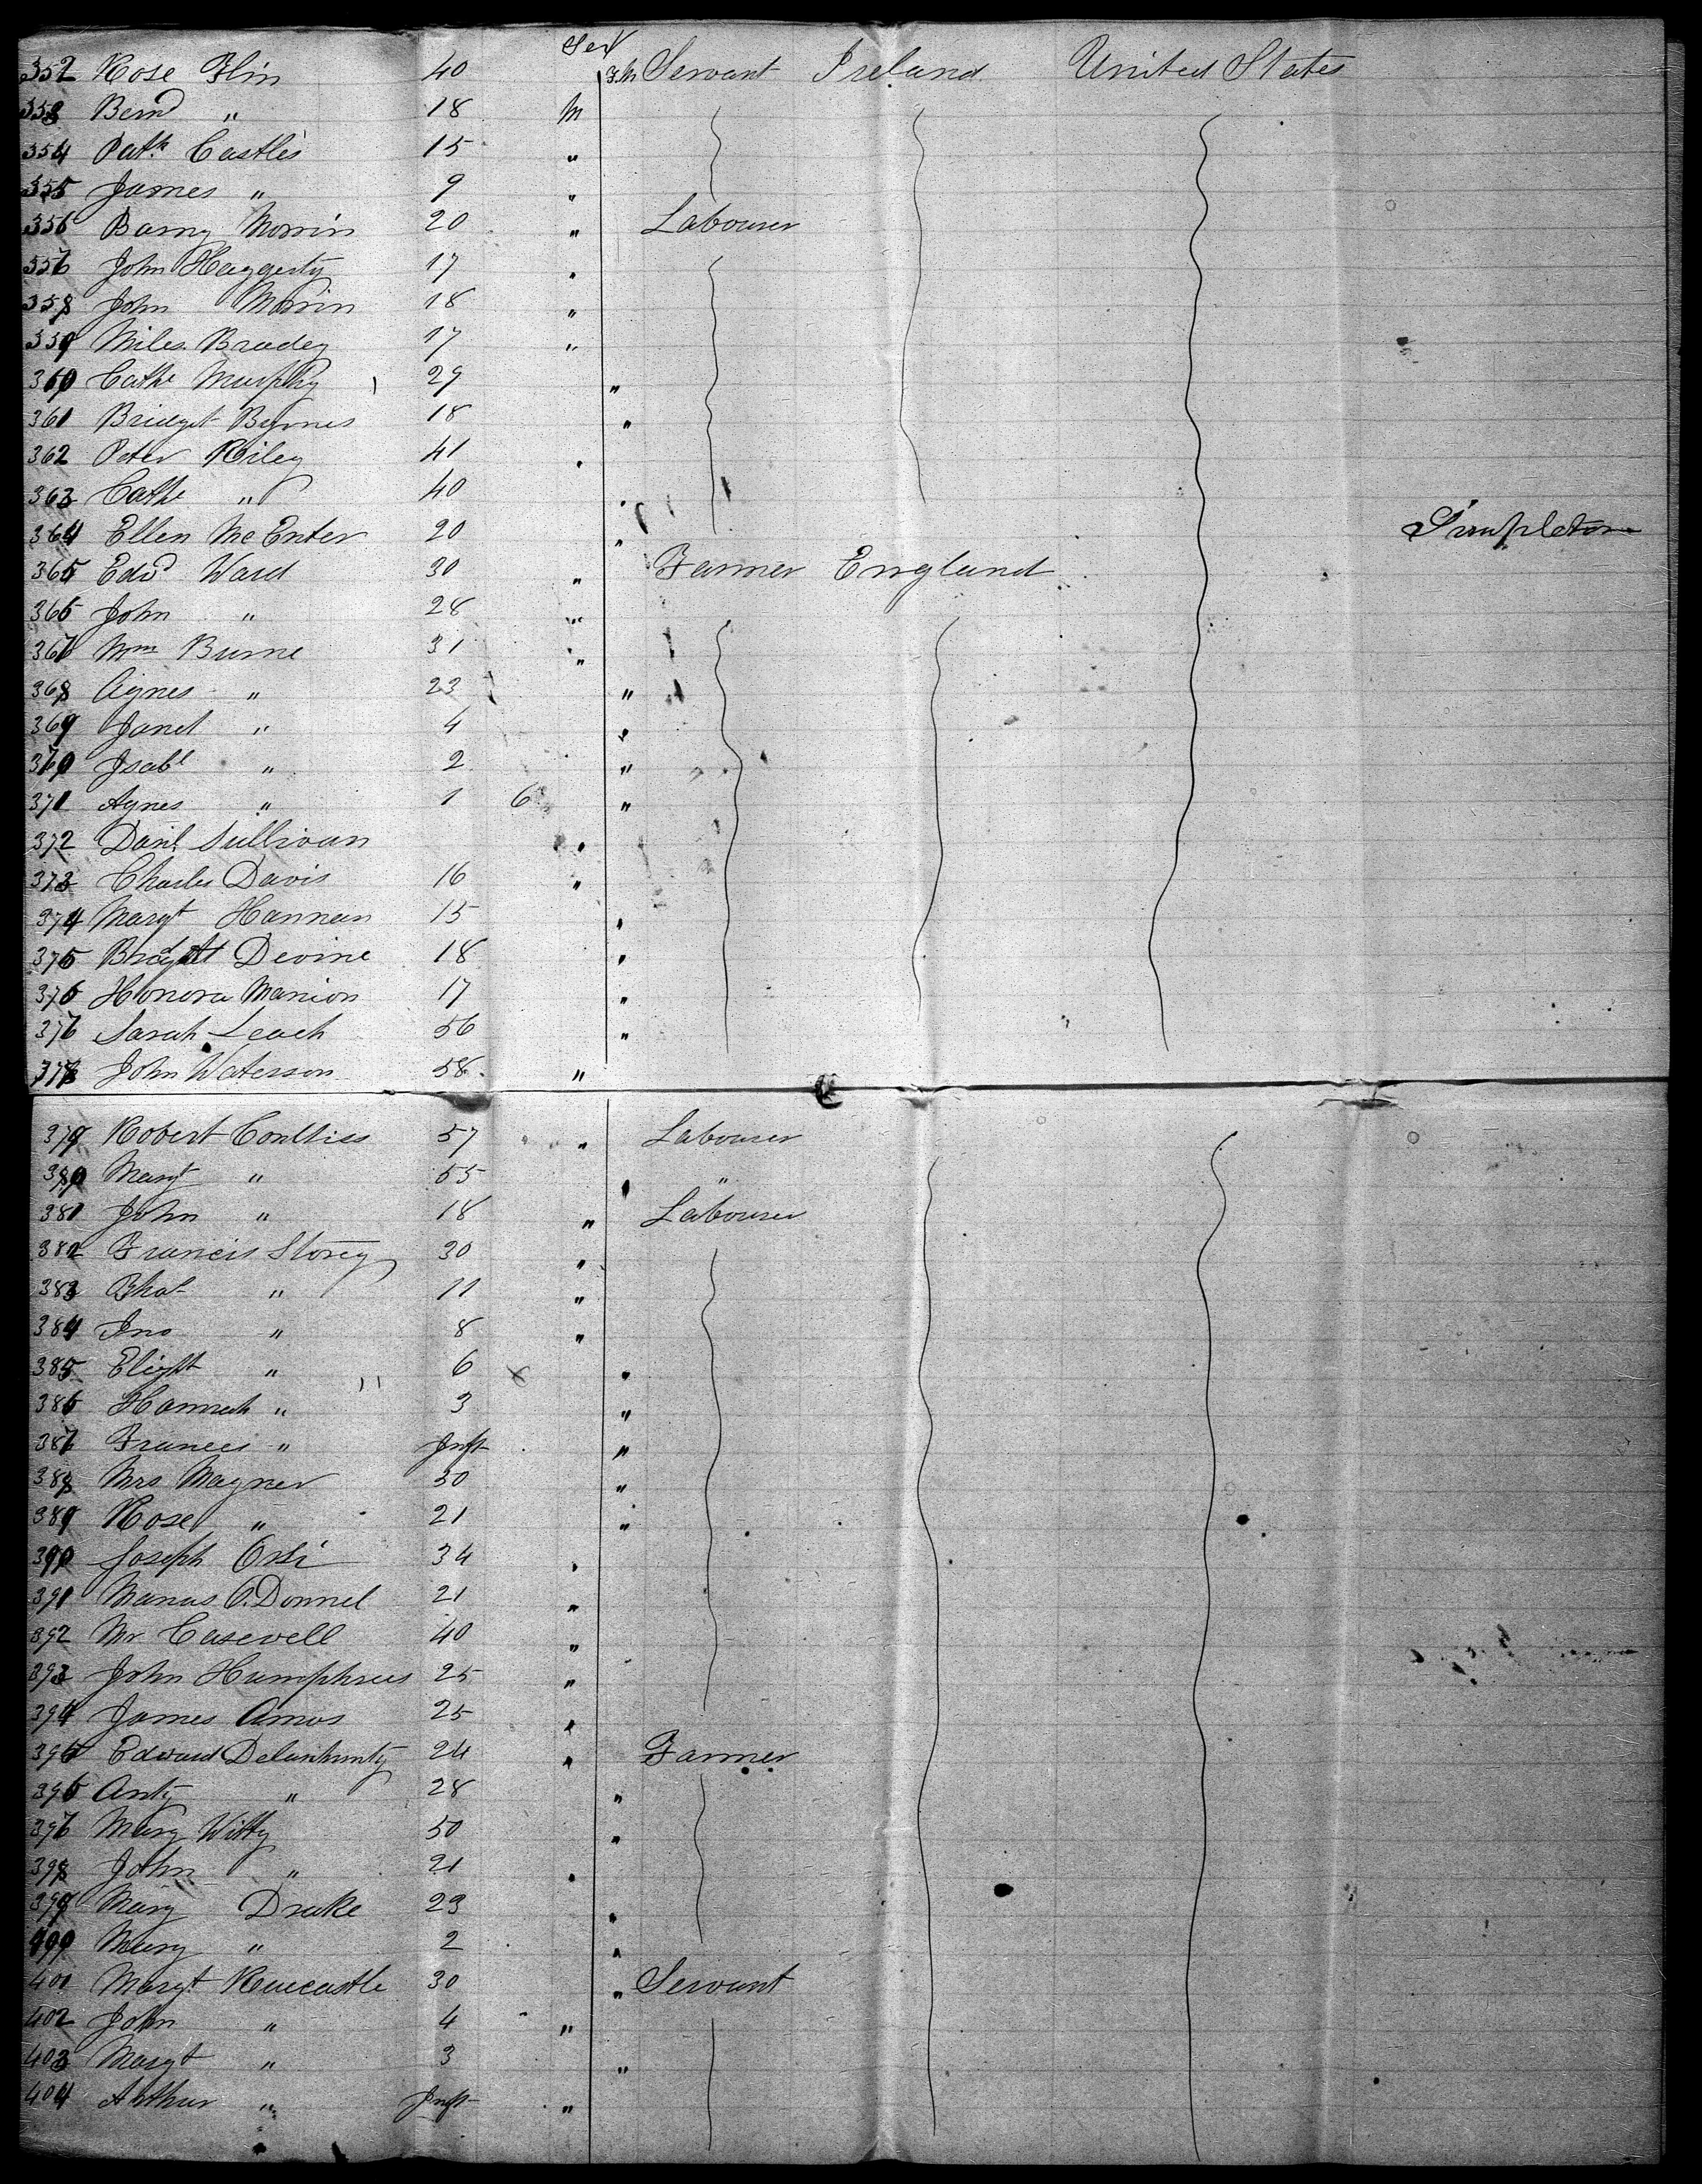 Sex
352 Rose Flin 40 F M Servant Ireland United States
353 Bernd " 18 M
354 Patk Castles 15 "
355 James " 9 "
356 Barny Morrin 20 " Labourer
357 John Haggerty 17 "
358 John Morrin 18 "
359 Miles Bradey 17 "
360 Cathe Murphy 29 "
361 Bridget Byrnes 18 "
362 Peter Riley 41 "
363 Cathe " 40 "
364 Ellen McEnter 20 "
365 Edwd Ward 30 " Farmer England
366 John " 28 "
367 Wm Burne 31 "
368 Agnes " 23 "
369 Janet " 4 "
370 Isabl " 2 "
371 Agnes " 1 6 "
372 Danl Sullivan "
373 Charles Davis 16 "
374 Margt Hannan 15 "
375 Devine 18 "
376 Honora Manion 17 "
377 Sarah Leach 56 "
378 John Waterson 58 "
379 Robert Coultiss 57 " Labourer
380 Margt " 55 " "
381 John " 18 " Labourer
382 Francis Storey 30 "
383 " 11 "
384 Jno " 8 "
385 " 6 "
386 Hannah " 3 "
387 Frances " Inft "
388 Mrs Magner 50 "
389 Rose " 21 "
390 Joseph 34 "
391 Manus O.Donnel 21 "
392 Mr Casewell 40 "
393 John Humphries 25 "
394 James Amos 25 "
395 Edward Delanhunty 24 " Farmer
396 Anty " 28 "
397 Mary Witty 50 "
398 John " 21 "
399 Mary Drake 23 "
400 Mary " 2 "
401 Margt Newcastle 30 " Servant
402 John " 4 "
403 Margt " 3 "
404 Arthur " Inft "